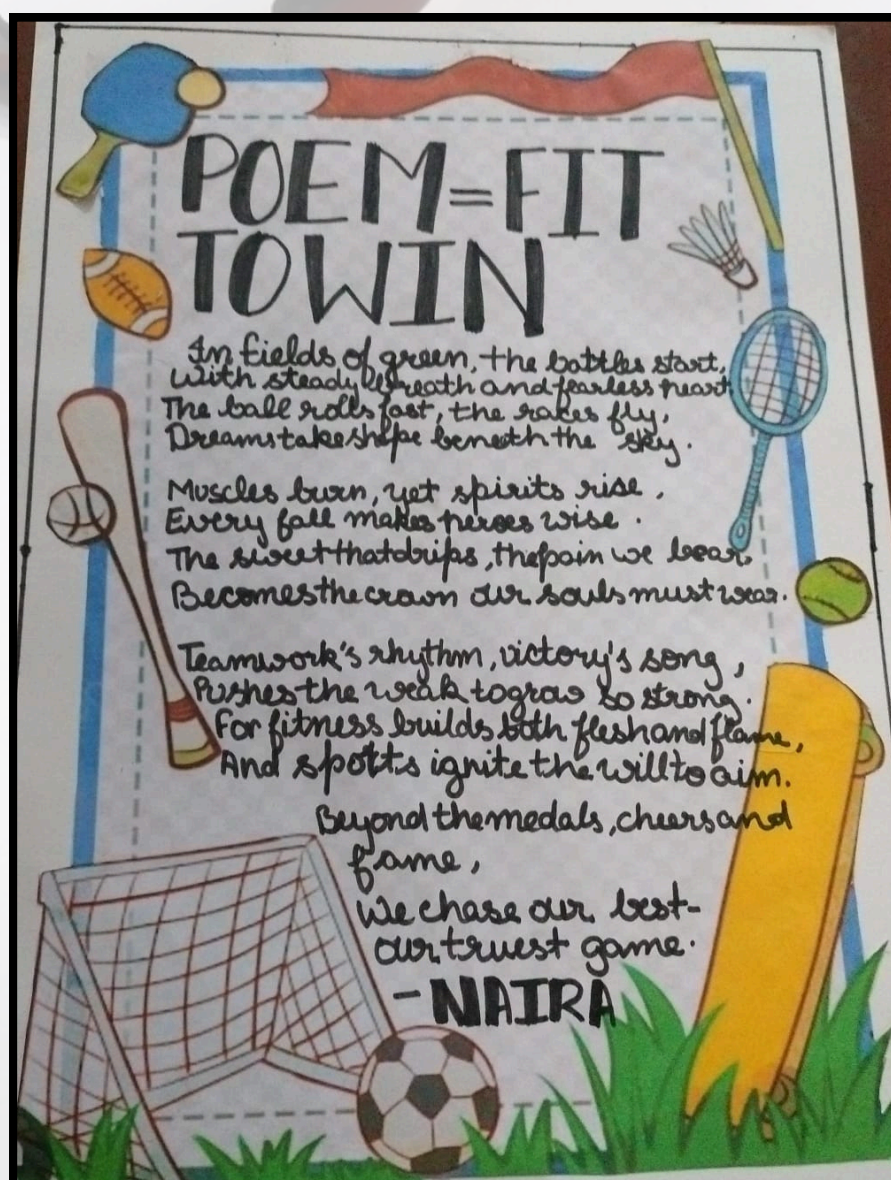 POEM=FIT
TO WIN
In fields of green, the battles start,
With steady breath and fearless heart
The ball rolls fast, the races fly,
Dreams take shape beneath the sky.
Muscles burn, yet spirits rise,
Every fall makes heroes wise.
The sweet that drips, the pain we bear,
Becomes the crown our souls must wear.
Teamwork's rhythm, victory's song,
Pushes the weak to grow so strong.
For fitness builds both flesh and flame,
And spotts ignite the will to aim.
Beyond the medals, cheers and
fame,
We chase our best-
our truest game.
-NAIRA